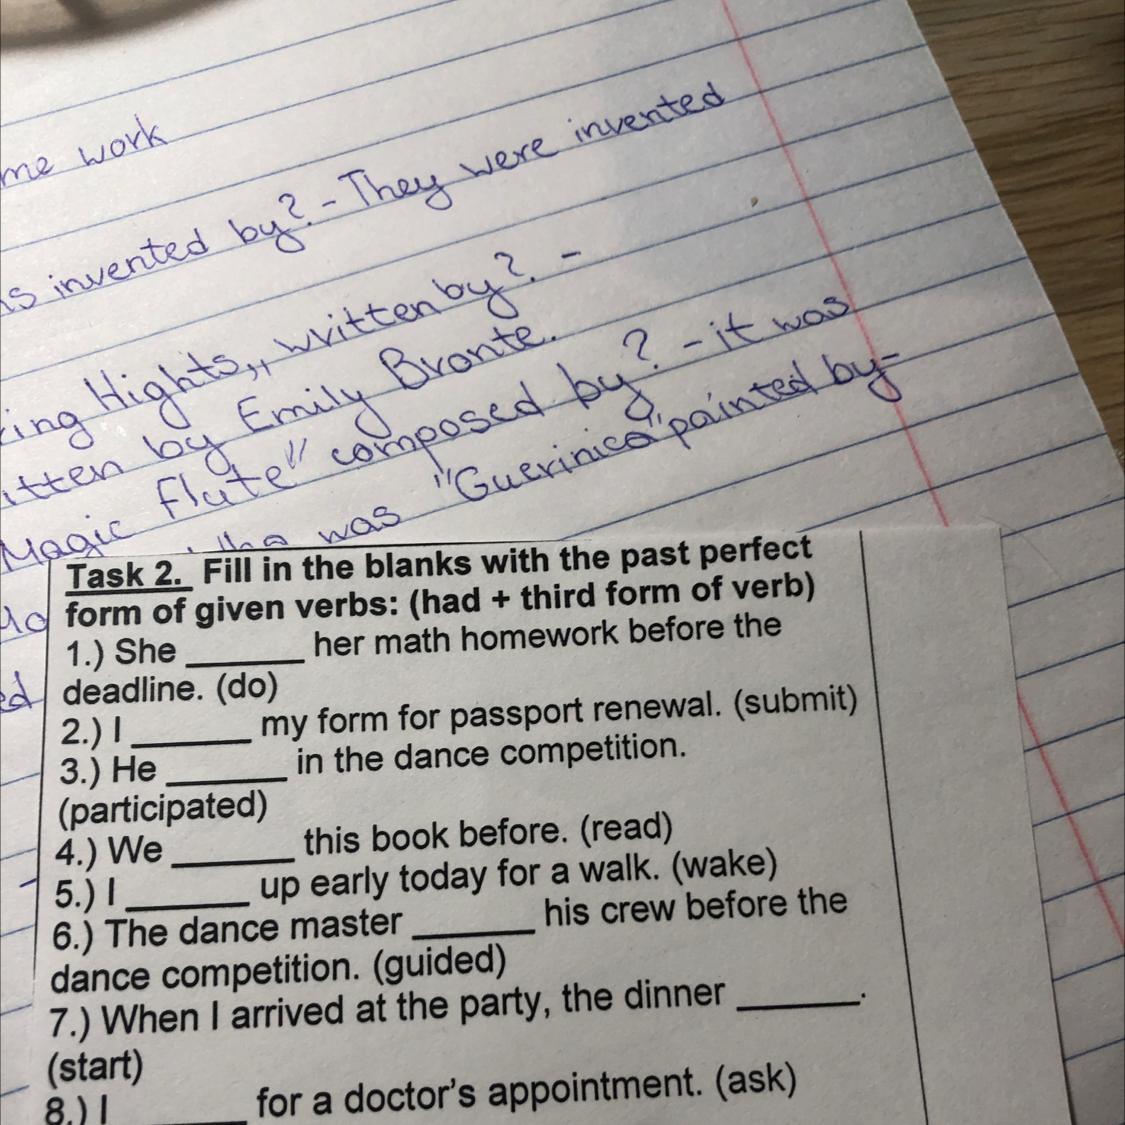 me work
s invented by? - They were invented
ing Hights,, written by? -
itten by Emily Bronte.
Magic Flute" composed by? - it was
was "Guerinica" painted by-
ed
Task 2. Fill in the blanks with the past perfect
form of given verbs: (had + third form of verb)
1.) She ______ her math homework before the
deadline. (do)
2.) I ______ my form for passport renewal. (submit)
3.) He ______ in the dance competition.
(participated)
4.) We ______ this book before. (read)
5.) I ______ up early today for a walk. (wake)
6.) The dance master ______ his crew before the
dance competition. (guided)
7.) When I arrived at the party, the dinner ______.
(start)
8.) I ______ for a doctor's appointment. (ask)